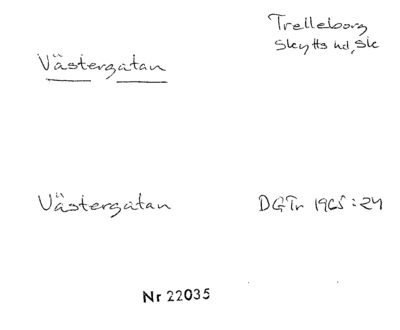 Trelleborg
Skytts hd, Sk
Västergatan
Västergatan DGTr 1965:24
Nr 22035